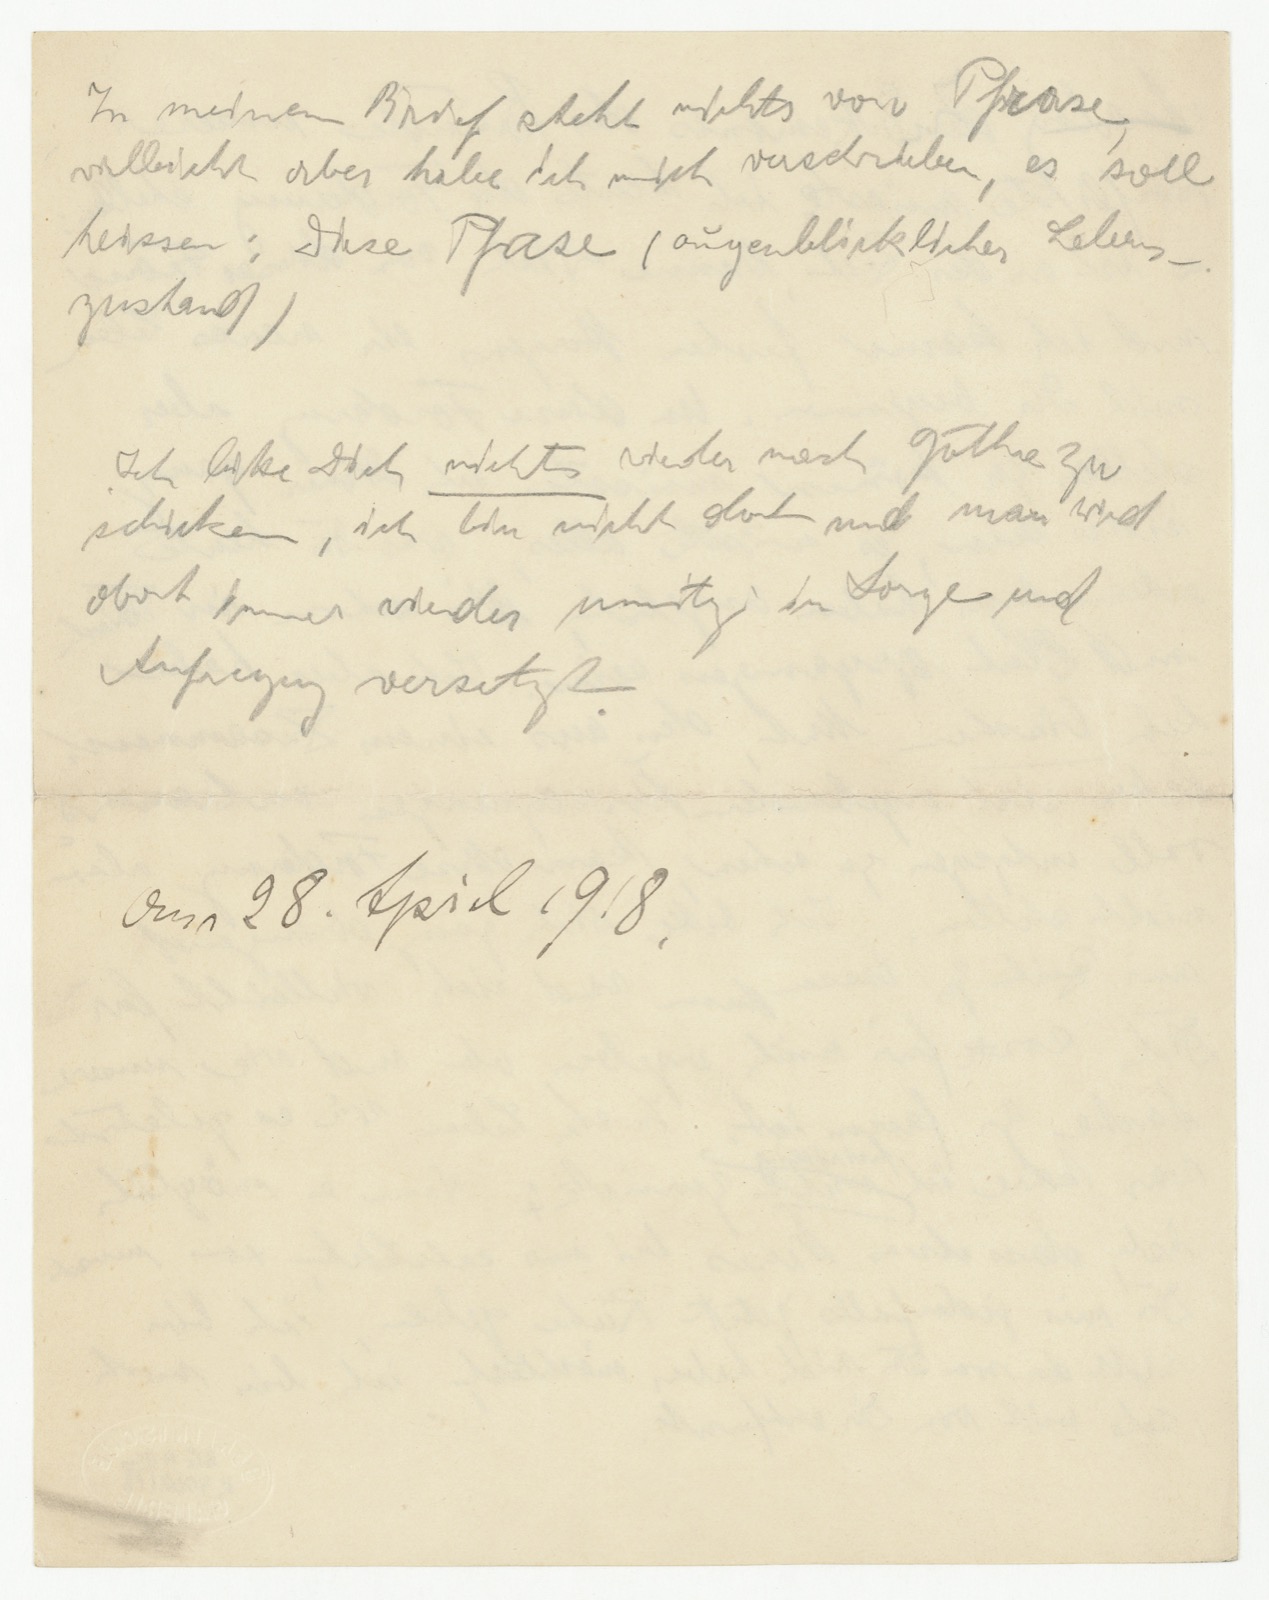 In meinem Brief steht nichts von Phrase,
vielleicht aber habe ich mich verschrieben, es soll
heissen: Diese Phase (augenblicklicher Lebens-
zustand)
Ich bitte Dich nichts wieder nach zu
schicken, ich bin nicht dort und man wird
dort immer wieder unnütz in Sorge und
Aufregung versetzt.
am 28. April 1918.